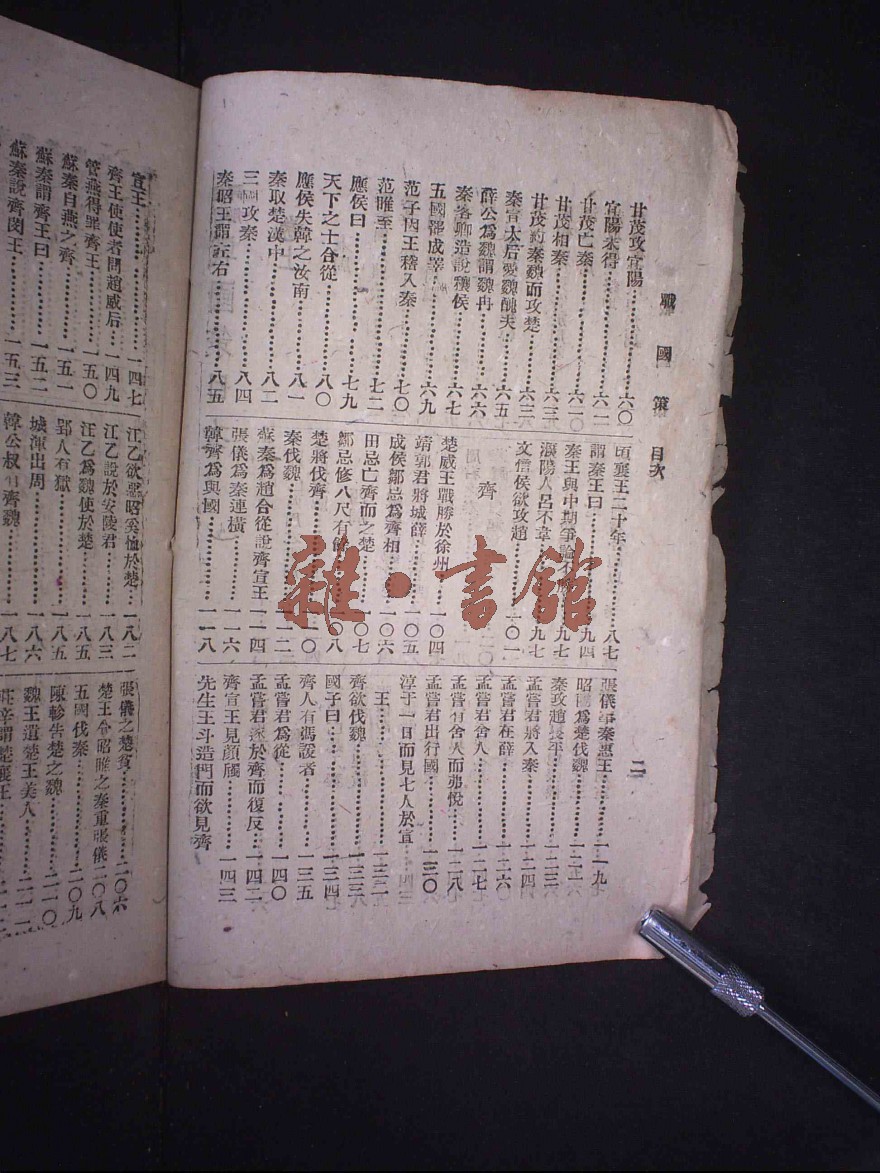 戰國策 目次 二
甘茂攻宜陽 六〇
宜陽未得 六一
甘茂亡秦 六二
甘茂相秦 六三
甘茂約秦魏而攻楚 六三
秦宣太后愛魏醜夫 六五
薛公爲魏謂魏冉 六六
秦客卿造說穰侯 六七
五國罷成睪 六九
范子因王稽入秦 七〇
范睢至 七二
應侯曰 七九
天下之士合從 八〇
應侯失韓之汝南 八一
秦取楚漢中 八二
三國攻秦 八四
秦昭王謂左右 八五
頃襄王二十年 八七
謂秦王曰 九四
秦王與中期爭論 九七
濮陽人呂不韋 九七
文信侯欲攻趙 一〇一
齊
楚威王戰勝於徐州 一〇四
靖郭君將城薛 一〇五
成侯鄒忌爲齊相 一〇六
田忌亡齊而之楚 一〇七
鄒忌修八尺有餘 一〇八
楚將伐齊 一一〇
秦伐魏 一一二
蘇秦爲趙合從說齊宣王 一一四
張儀爲秦連橫 一一六
韓齊爲與國 一一八
張儀事秦惠王 一一九
昭陽爲楚伐魏
秦攻趙長平 一二三
孟嘗君將入秦 一二四
孟嘗君在薛 一二六
孟嘗君舍人 一二七
孟嘗有舍人而弗悅 一二八
孟嘗君出行國 一三〇
淳于一日而見七人於宣
王 一三二
齊欲伐魏 一三三
國子曰 一三四
齊人有馮諼者 一三五
孟嘗君爲從 一四〇
孟嘗君逐於齊而復反 一四二
齊宣王見顏斶 一四三
先生王斗造門而欲見齊
宣王 一四七
齊王使使者問趙威后 一四九
管燕得罪齊王 一五〇
蘇秦自燕之齊 一五一
蘇秦謂齊王曰 一五二
蘇秦說齊閔王 一五三
江乙欲惡昭奚恤於楚 一八二
江乙說於安陵君 一八三
江乙爲魏使於楚 一八五
郢人有獄 一八五
城渾出周 一八六
韓公叔有齊魏 一八七
張儀之楚貧 二〇六
楚王令昭睢之秦重張儀 二〇八
五國伐秦 二〇九
陳軫告楚之魏 二一〇
魏王遺楚王美人 二一一
莊辛謂楚襄王
雜·書館